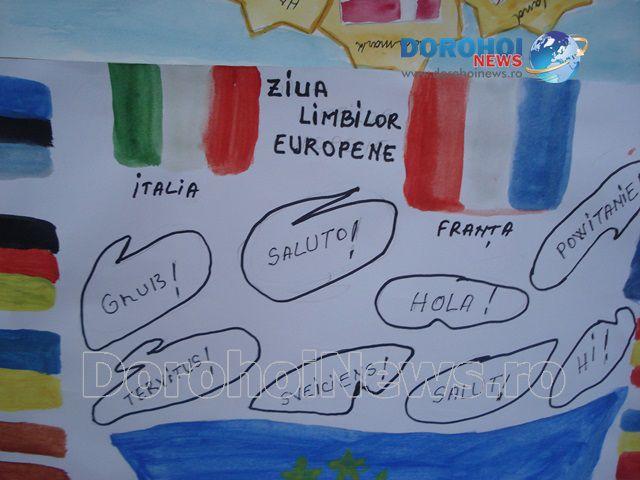 land
DOROHOI
NEWS
www.dorohoinews.ro
ZIUA
LIMBILOR
EUROPENE
ITALIA
FRANȚA
POWITANIE!
SALUTO!
GRUB!
HOLA!
HI!
TERVITUS!
SVEICIENS!
SALUT!
DorohoiNews.ro